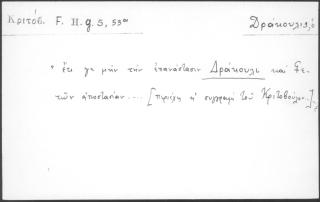 Κριτόβ. F. H. g. 5, 53α Δράκουλις, ὁ
" ἔτι γε μὴν τὴν ἐπανάστασιν Δράκουλι καὶ Γε-
τῶν ἀποστασίαν.... [περιέχει ἡ συγγραφὴ τοῦ Κριτοβούλου..]